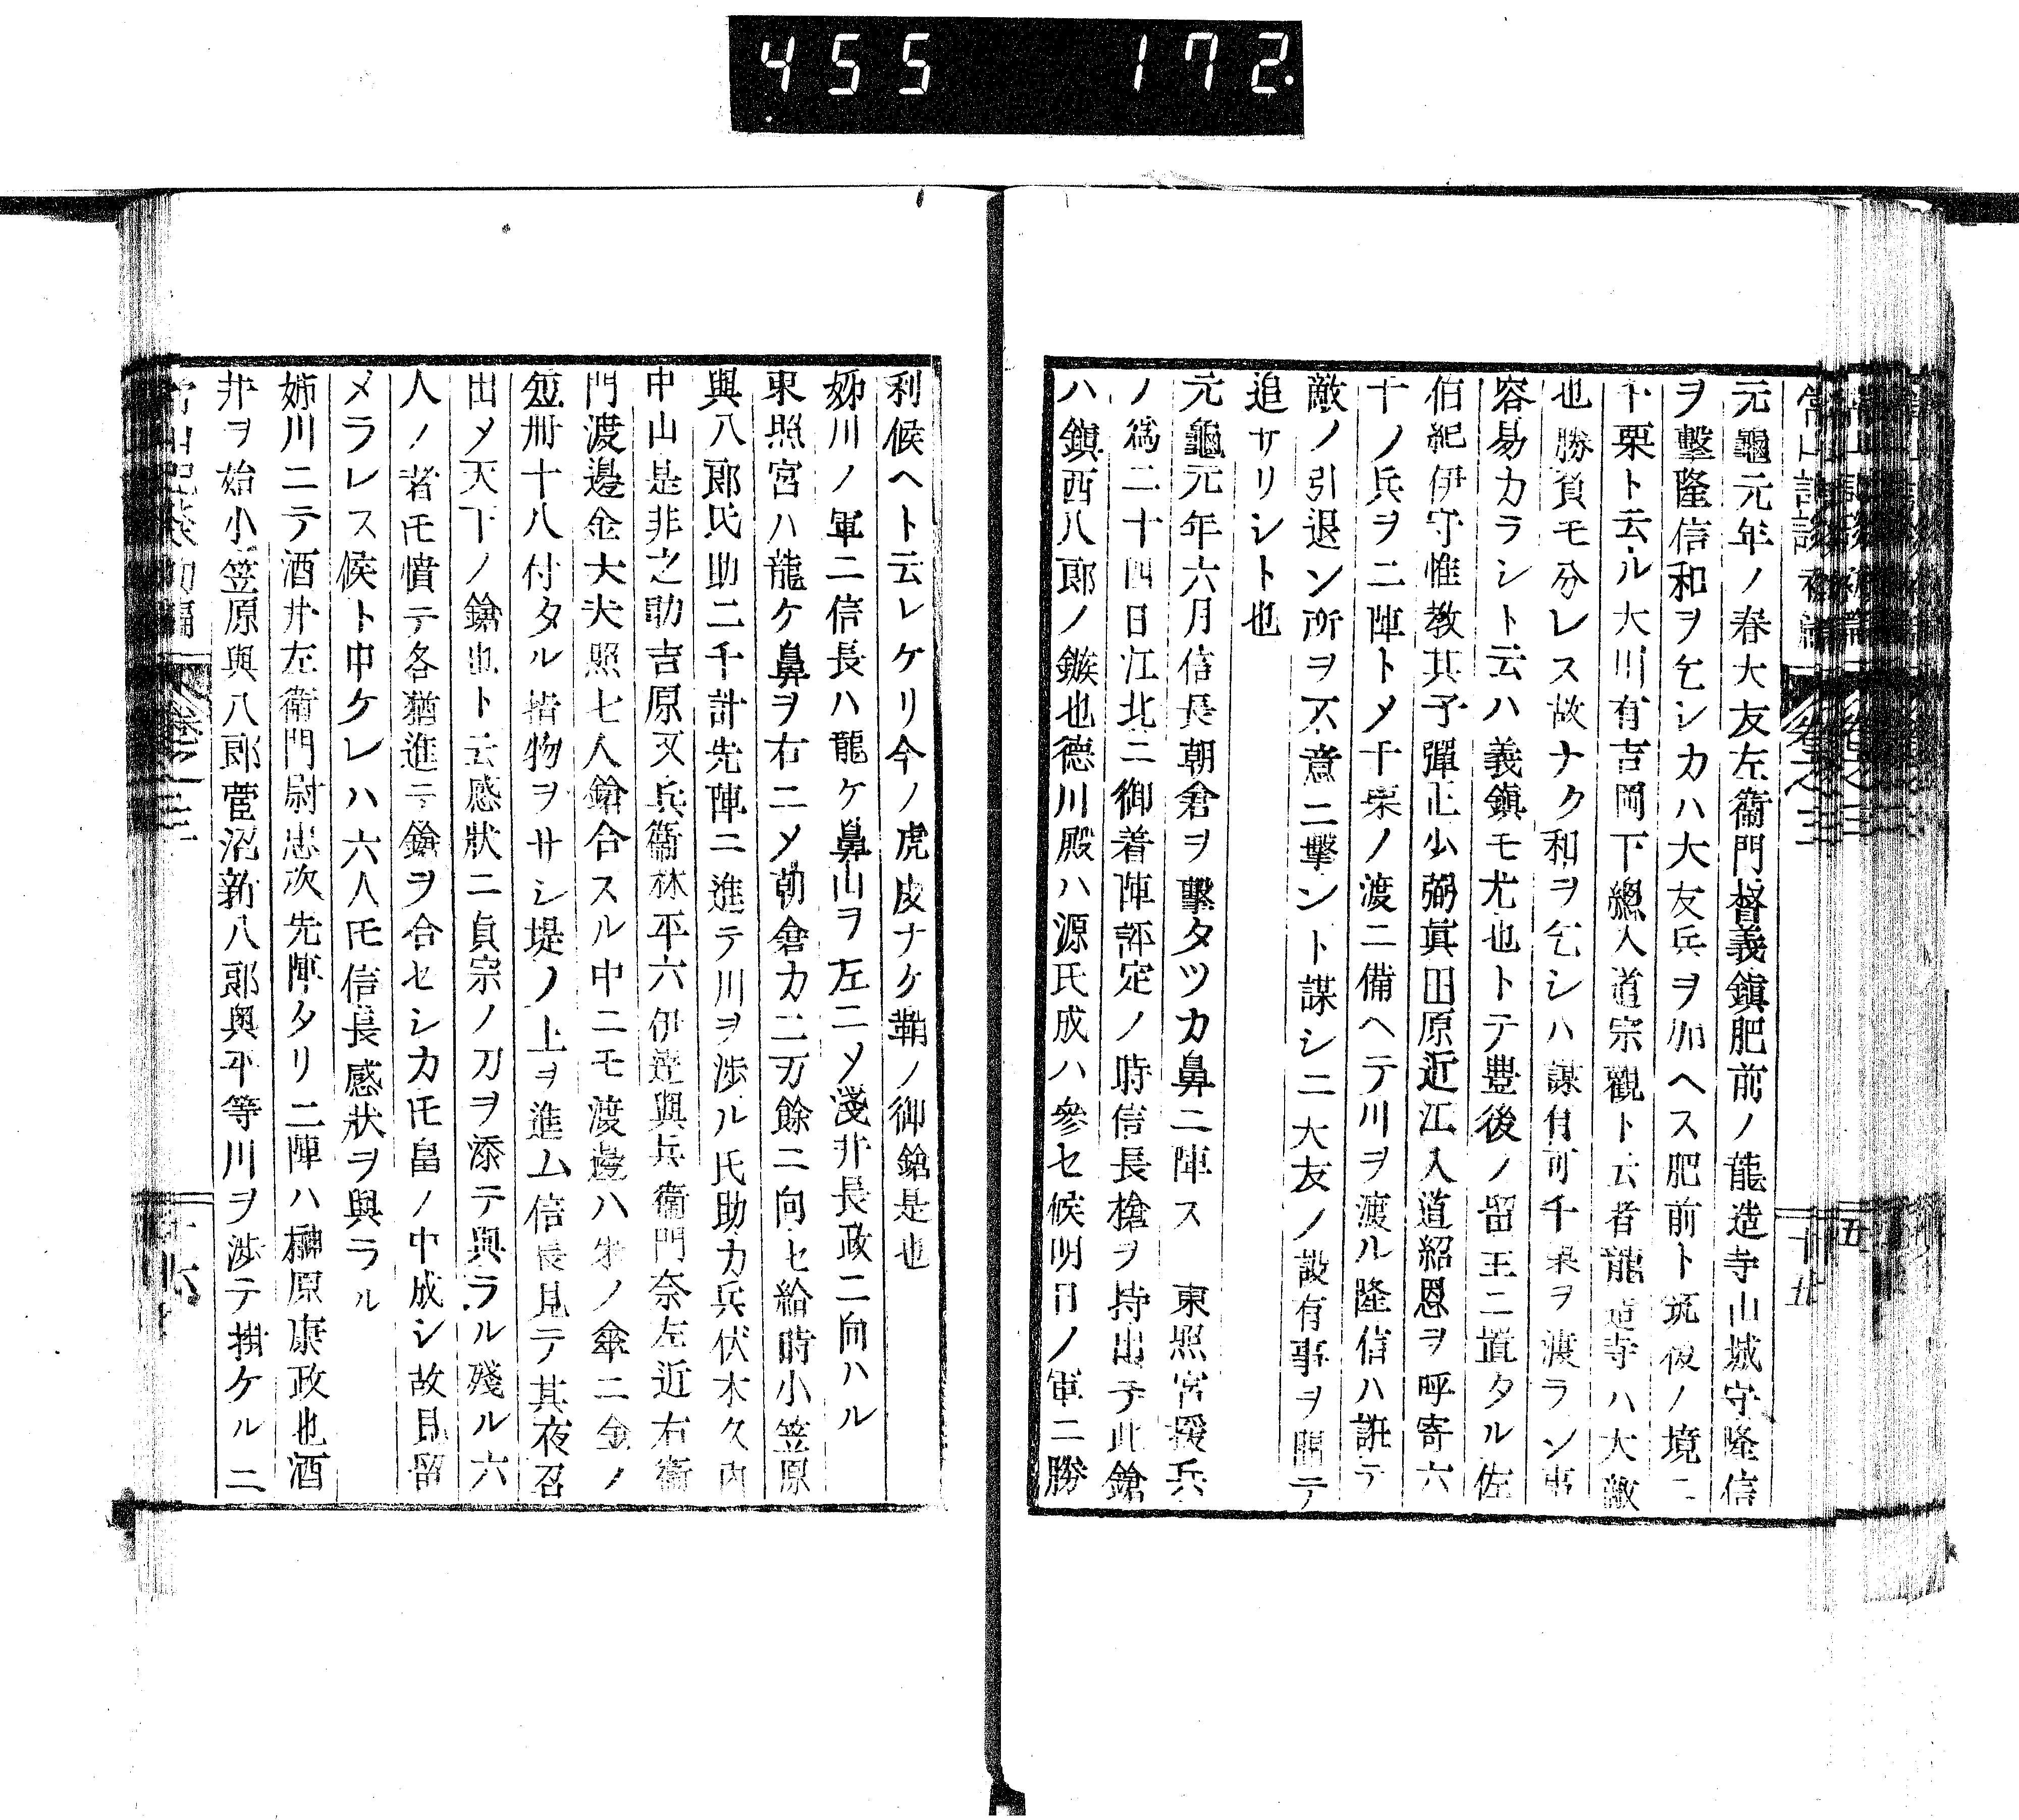 455 172.
元龜元年ノ春大友左衞門督義鎭肥前ノ龍造寺山城守隆信
ヲ擊隆信和ヲ乞シカハ大友兵ヲ加ヘス肥前ト筑後ノ境ニ
千栗ト云ル大川有吉岡下總入道宗觀ト云者龍造寺ハ大敵
也勝負モ分レス故ナク和ヲ乞シハ謀有可千栗ヲ渡ラン事
容易カラシト云ハ義鎭モ尤也トテ豊後ノ留主ニ置タル佐
伯紀伊守惟教其子彈正少弼眞田原近江入道紹恩ヲ呼寄六
千ノ兵ヲ二陣トメ千栗ノ渡ニ備ヘテ川ヲ渡ル隆信ハ詐テ
敵ノ引退ン所ヲ不意ニ擊ント謀シニ大友ノ設有事ヲ聞テ
追サリシト也
元龜元年六月信長朝倉ヲ擊タツカ鼻ニ陣ス 東照宮援兵
ノ爲二十四日江北ニ御着陣評定ノ時信長槍ヲ持出テ此鎗
ハ鎭西八郎ノ鏃也德川殿ハ源氏成ハ參セ候明日ノ軍ニ勝
利候ヘト云レケリ今ノ虎皮ナケ鞘ノ御鎗是也
姊川ノ軍ニ信長ハ龍ケ鼻山ヲ左ニメ淺井長政ニ向ハル
東照宮ハ龍ケ鼻ヲ右ニメ朝倉カ二万餘ニ向セ給時小笠原
與八郎氏助二千計先陣ニ進テ川ヲ渉ル氏助カ兵伏木久內
中山是非之助吉原又兵衞林平六伊達與兵衞門奈左近右衞
門渡邊金大夫照七人鎗合スル中ニモ渡邊ハ朱ノ傘ニ金ノ
短冊十八付タル指物ヲサシ堤ノ上ヲ進ム信長見テ其夜召
出メ天下ノ鎗也ト云感狀ニ貞宗ノ刀ヲ添テ與ラル殘ル六
人ノ者モ憤テ各猶進テ鎗ヲ合セシカ𪜈畠ノ中成シ故見留
メラレス候ト申ケレハ六人𪜈信長感狀ヲ與ラル
姊川ニテ酒井左衞門尉忠次先陣タリ二陣ハ榊原康政也酒
井ヲ始小笠原與八郎菅沼新八郎奥平等川ヲ渉テ掛ケルニ